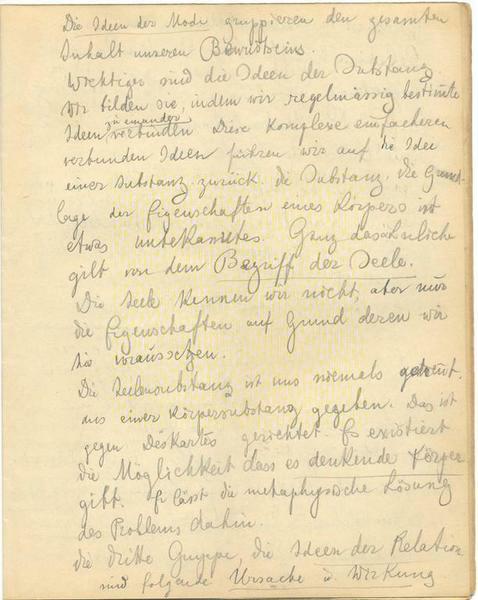 Die Ideen der Modi gruppieren den gesamten
Inhalt unseren Bewusstseins.
Wichtiges sind die Ideen der Substanz
Wir bilden sie, indem wir regelmässig bestimte
zu einander
Ideen verbinden Diese Komplexe einfacheren
verbunden Ideen führen wir auf die Idee
einer Substanz zurück. die Substanz. die Grund-
lage der Eigenschaften eines Körpers ist
etwas unbekanntes. Ganz dasähnliche
gilt von dem Begriff der Seele.
Die Seele kennen wir nicht, aber nur
die Eigenschaften auf Grund deren wir
sie voraussetzen.
Die Seelensubstanz ist uns niemals
aus einer Körpersubstanz gegeben. Das ist
gegen Deskartes gerichtet. Es existiert
die Möglichkeit dass es denkende Körper
gibt. Er lässt die metaphysische Lösung
des Problems dahin.
die dritte Gruppe, die Ideen der Relation
sind folgende Ursache u. Wirkung